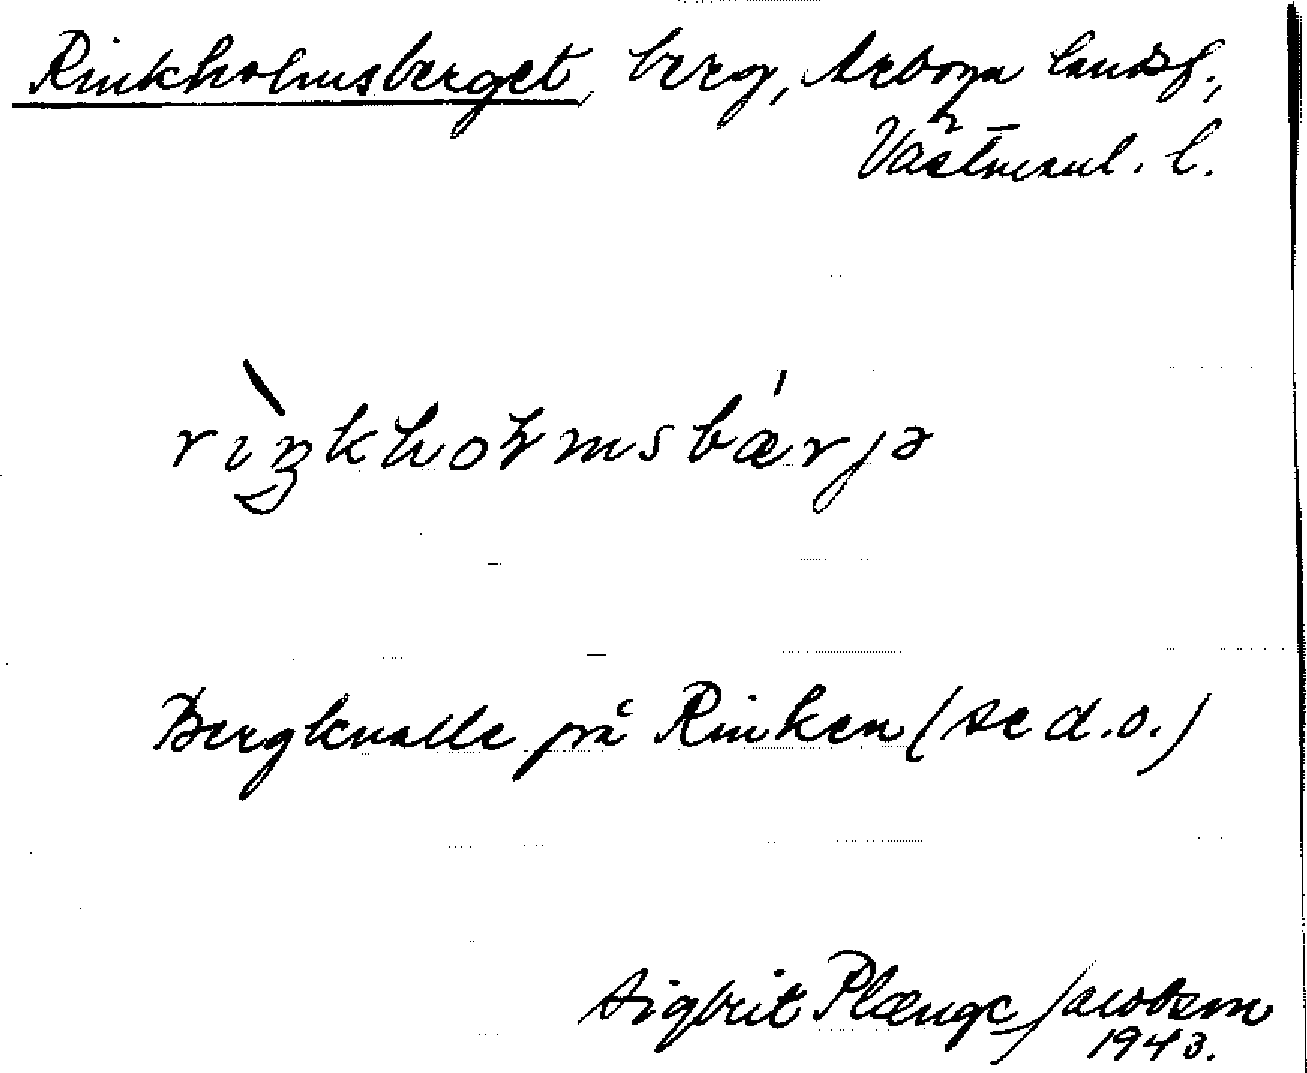 Rinkholmsberget, berg, Arboga landsf.,
Västmanl. l.
rìŋkhoɫmsbærjə
Bergknalle på Rinken (se d.o.)
Sigbrit Plænge Jacobson
1943.